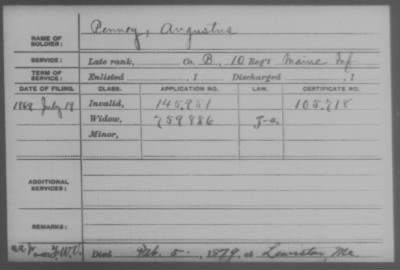 NAME OF SOLDIER: Penney, Augustus
SERVICE: Late rank, Co. B, 10 Reg't Maine Inf
TERM OF SERVICE: Enlisted , 1 Discharged , 1
DATE OF FILING. CLASS. APPLICATION NO. LAW. CERTIFICATE NO.
1868 July 18 Invalid, 145,951 105,718
Widow, 759886
Minor,
ADDITIONAL SERVICES:
REMARKS:
Died Feb. 5, 1879, at Lewiston, Me